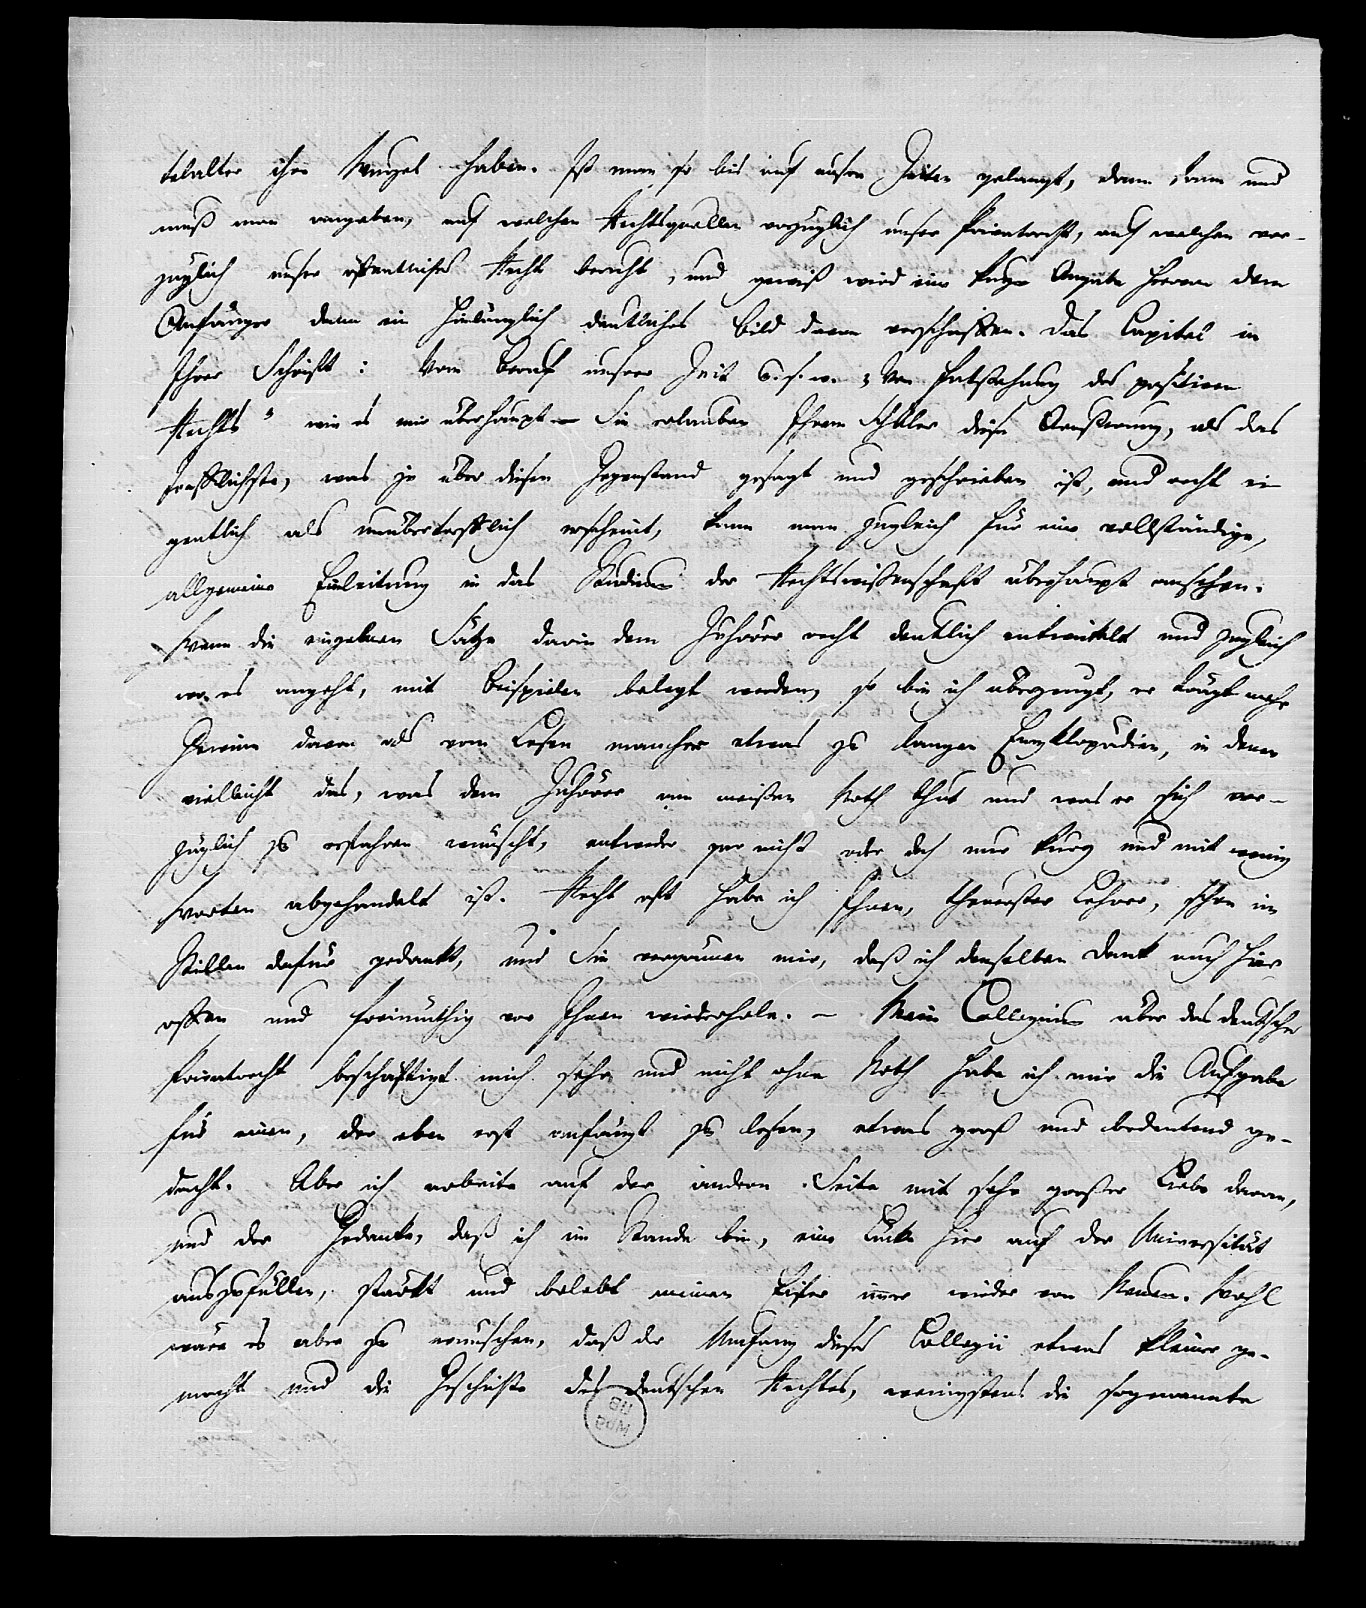 telalter ihre Wurzel haben. Ist man so bis auf unsre Zeiten gelangt, dann kann und
muß man angeben, auf welchen Rechtsquellen vorzüglich unser Privatrecht, auf welchen vor-
züglich unser öffentliches Recht beruht, und gewiß wird eine kurze Angabe hievon dem
Anfänger dann ein hinlänglich deutliches Bild davon verschaffen. Das Capitel in
Ihrer Schrift: Vom Beruf unsrer Zeit u. s. w. „Von Entstehung des positiven
Rechts“ wie es mir überhaupt – Sie erlauben Ihrem Schüler diese Aeußerung, als das
trefflichste, was je über diesen Gegenstand gesagt und geschrieben ist, und recht ei-
gentlich als unübertrefflich erscheint, kann man zugleich für eine vollständige,
allgemeine Einleitung in das Studium der Rechtswissenschaft überhaupt ansehen.
Wenn die einzelnen Sätze darin dem Zuhörer recht deutlich entwickelt und zugleich
wo es angeht, mit Beispielen belegt werden, so bin ich überzeugt, er trägt mehr
Gewinn davon als vom Lesen mancher etwas zu langen Encyklopädien, in denen
vielleicht das, was dem Zuhörer am meisten Noth thut und was er sich vor-
züglich zu erfahren wünscht, entweder gar nicht oder doch nur kurz und mit wenig
Worten abgehandelt ist. Recht oft habe ich Ihnen, theuerster Lehrer, schon im
Stillen dafür gedankt, und Sie vergönnen mir, daß ich denselben Dank auch hier
offen und freimüthig vor Ihnen wiederhole. – Mein Collegium über das deutsche
Privatrecht beschäftigt mich sehr und nicht ohne Noth habe ich mir die Aufgabe
für einen, der eben erst anfängt zu lesen, etwas groß und bedeutend ge-
dacht. Aber ich arbeite auf der andern Seite mit sehr großer Liebe daran,
und der Gedanke, daß ich im Stande bin, eine Lücke hier auf der Universität
auszufüllen, stärkt und belebt meinen Eifer immer wieder von Neuem. Wohl
wäre es aber zu wünschen, daß der Umfang dieses Collegii etwas kleiner ge-
macht und die Geschichte des deutschen Rechtes, wenigstens die sogenannte